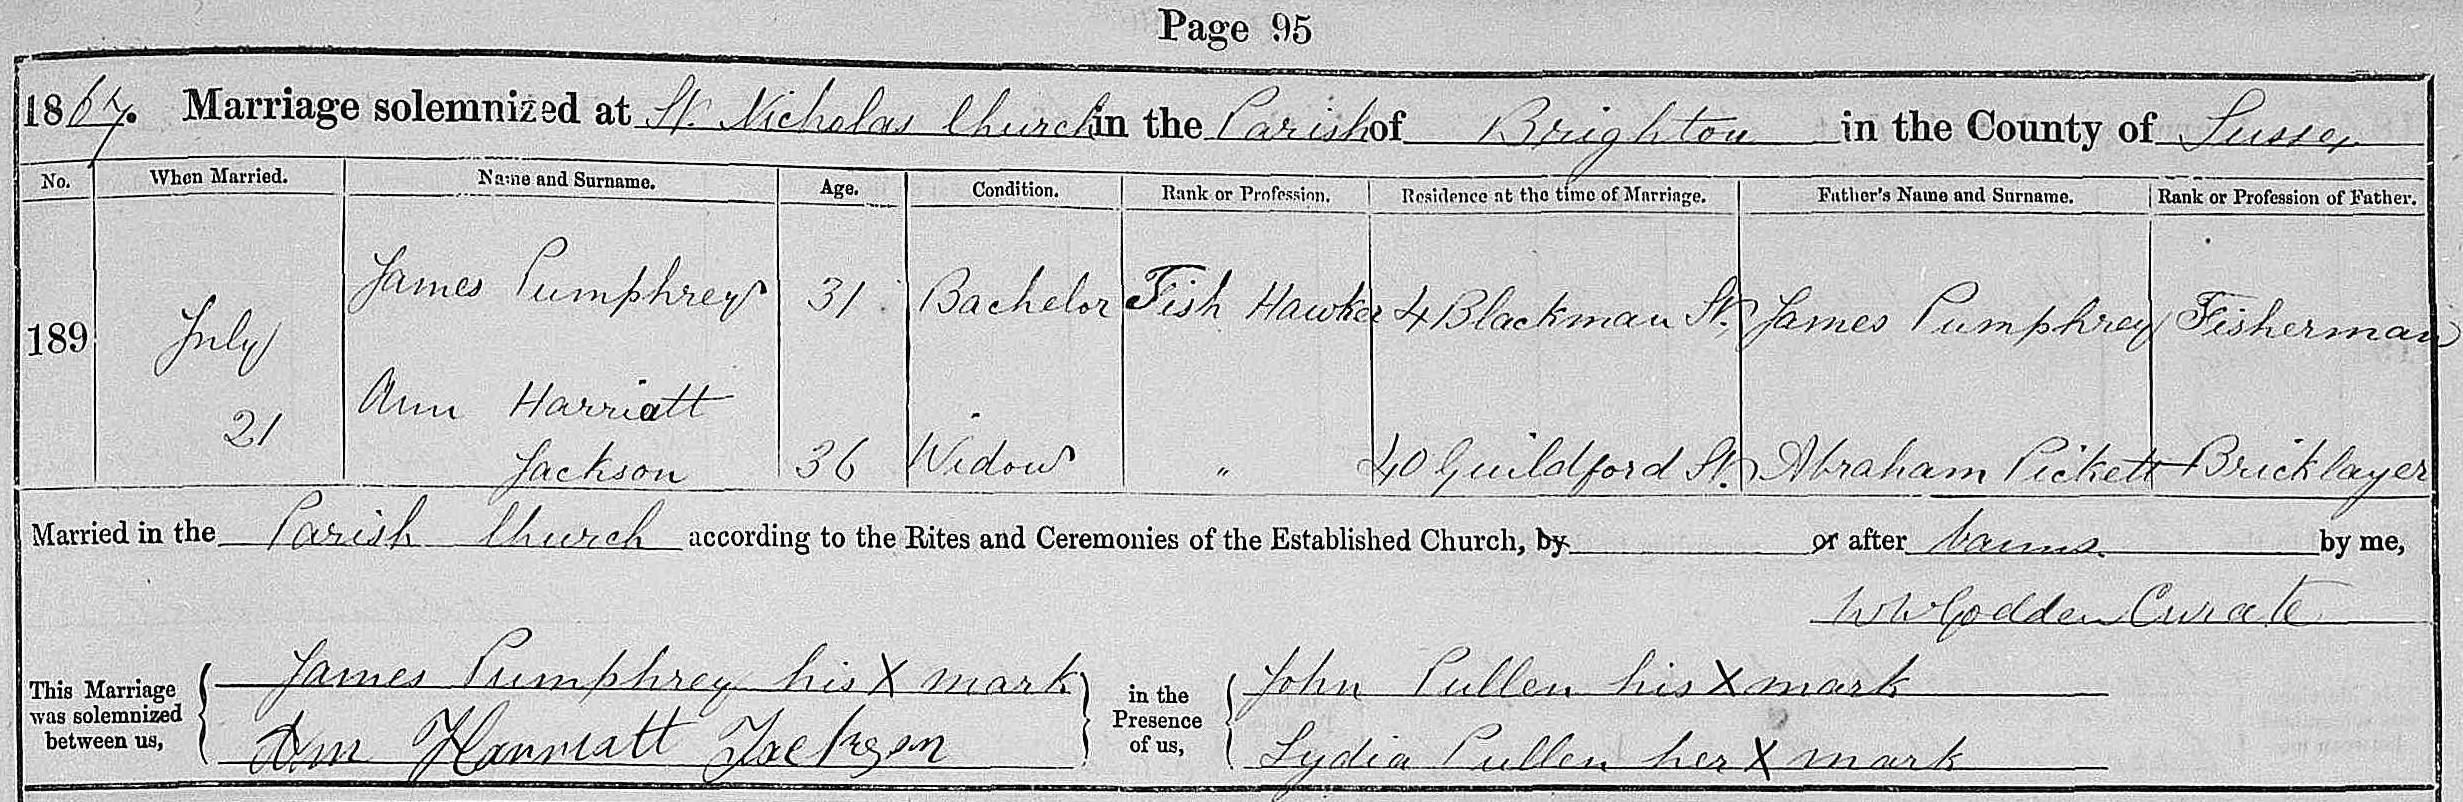 Page 95
1867. Marriage solemnized at St. Nicholas Church in the Parish of Brighton in the County of Sussex
No. When Married. Name and Surname. Age. Condition. Rank or Profession. Residence at the time of Marriage. Father's Name and Surname. Rank or Profession of Father.
189 July 21 James Pumphrey 31 Bachelor Fish Hawker 4 Blackman St. James Pumphrey Fisherman
Ann Harriatt
Jackson 36 Widow " 40 Guildford St. Abraham Pickett Bricklayer
Married in the Parish Church according to the Rites and Ceremonies of the Established Church, by or after banns. by me,
W W Godden Curate
This Marriage was solemnized between us, James Pumphrey his X mark in the Presence of us, John Pullen his X mark
Ann Harriatt Jackson Lydia Pullen her X mark